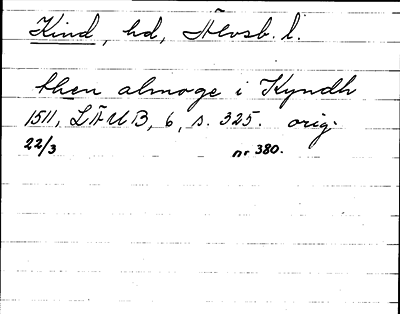 Kind, hd, Älvsb. l.
then almoge i Kyndh
1511, LÄUB, 6, s. 325. orig.
22/3 nr 380.